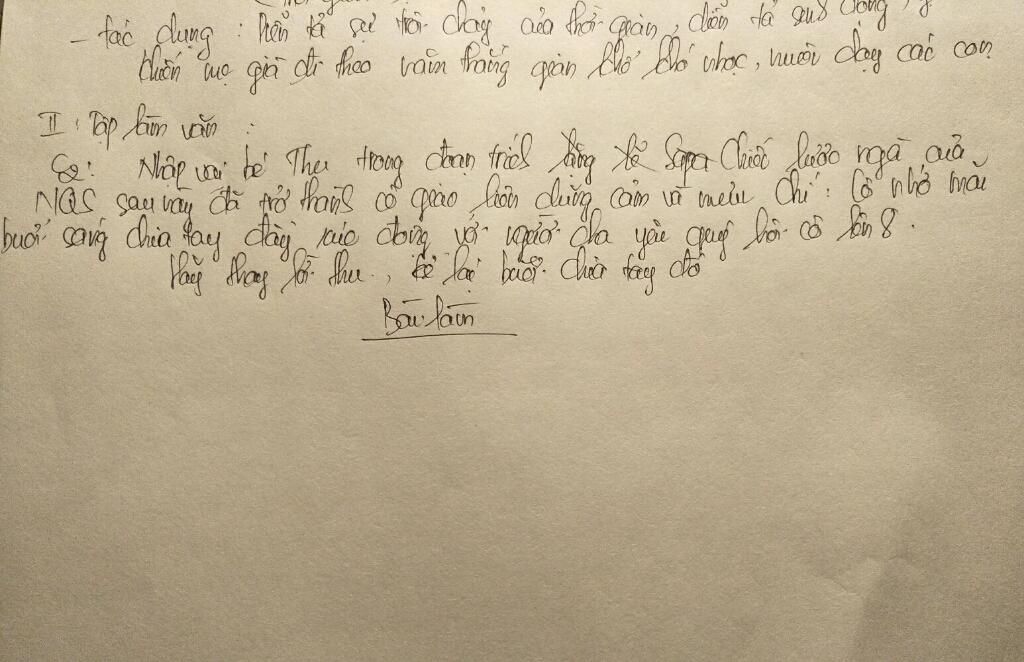 - tác dụng : diễn tả sự trôi chảy của thời gian, diễn tả sự
khiến mẹ già đi theo năm tháng gian khổ khó nhọc, nuôi dạy các con
II. Tập làm văn :
Nhập vai bé Thu trong đoạn trích Chiếc lược ngà của
NQS sau này đã trở thành cô giao liên dũng cảm và mưu trí. Cô nhớ mãi
buổi sáng chia tay đầy xúc động với người cha yêu quý hồi cô lên 8.
Hãy thay lời thu, kể lại buổi chia tay đó
Bài làm